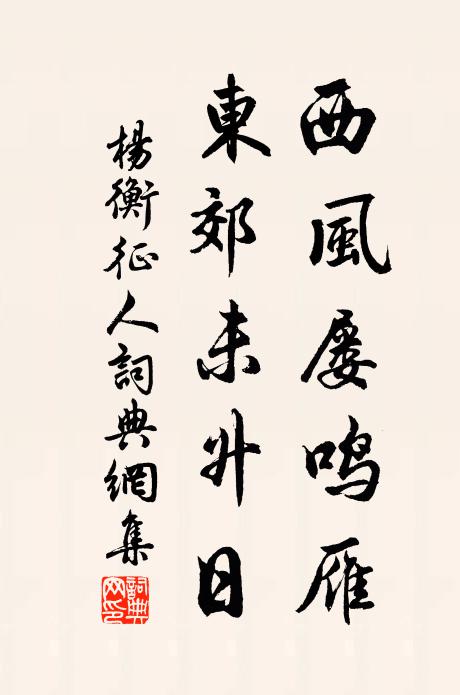 西風屡鳴雁
東郊未升日
楊衡征人詞典網集
詞典網印